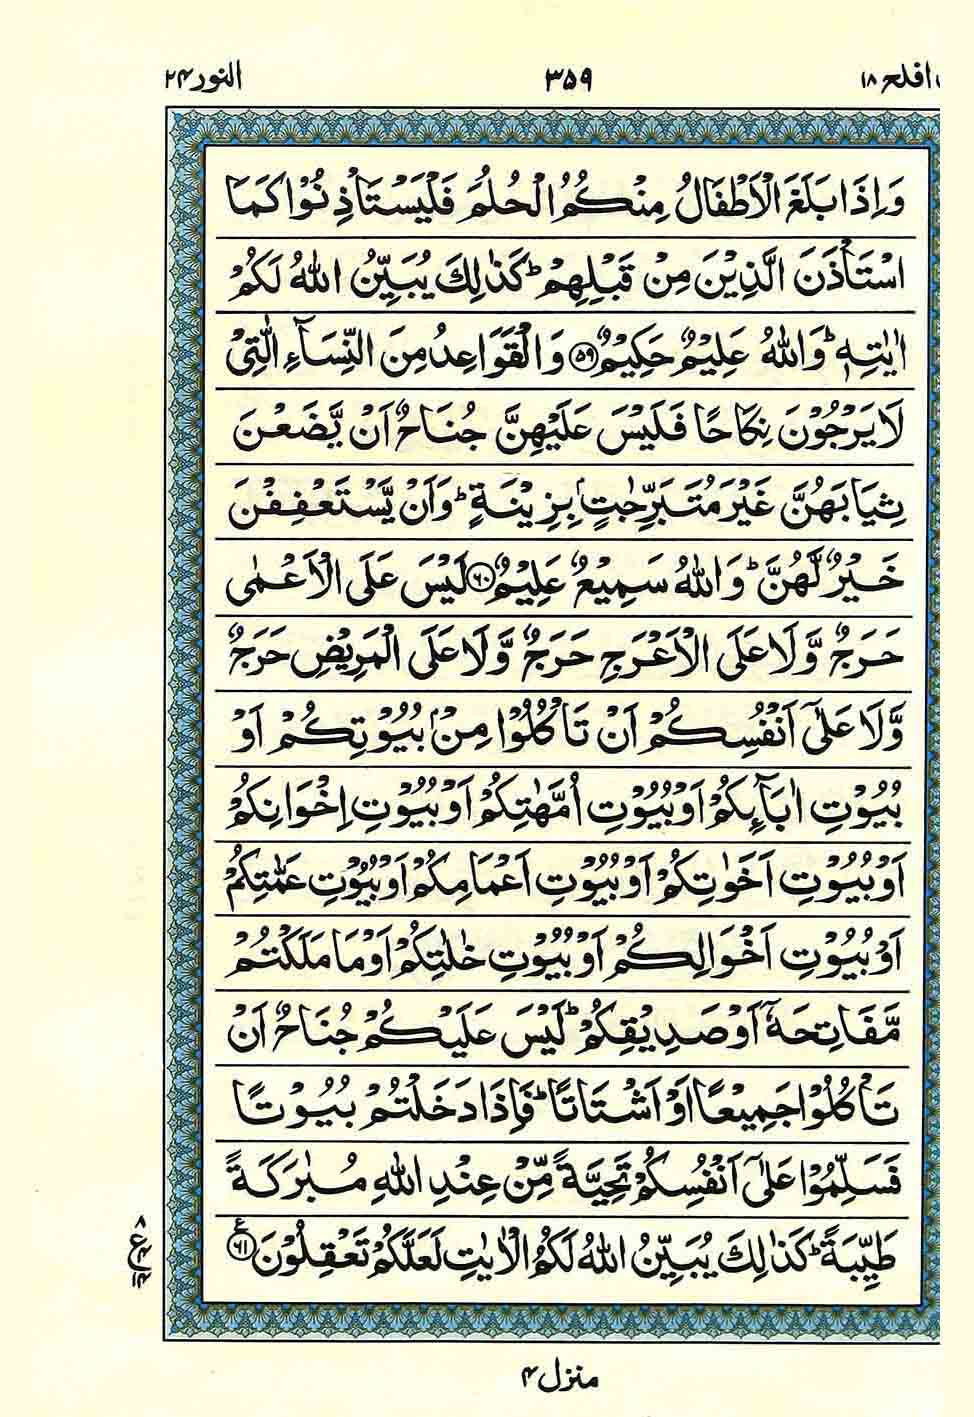 افلح ١٨ ٣٥٩ النور ٢٤
وَاِذَا بَلَغَ الْاَطْفَالُ مِنْكُمُ الْحُلُمَ فَلْيَسْتَاْذِنُوْا كَمَا
اسْتَاْذَنَ الَّذِيْنَ مِنْ قَبْلِهِمْ ؕ كَذٰلِكَ يُبَيِّنُ اللّٰهُ لَكُمْ
اٰيٰتِهٖ ؕ وَاللّٰهُ عَلِيْمٌ حَكِيْمٌ ﴿٥٩﴾ وَالْقَوَاعِدُ مِنَ النِّسَآءِ الّٰتِيْ
لَا يَرْجُوْنَ نِكَاحًا فَلَيْسَ عَلَيْهِنَّ جُنَاحٌ اَنْ يَّضَعْنَ
ثِيَابَهُنَّ غَيْرَ مُتَبَرِّجٰتٍۭ بِزِيْنَةٍ ؕ وَاَنْ يَّسْتَعْفِفْنَ
خَيْرٌ لَّهُنَّ ؕ وَاللّٰهُ سَمِيْعٌ عَلِيْمٌ ﴿٦٠﴾ لَيْسَ عَلَى الْاَعْمٰى
حَرَجٌ وَّلَا عَلَى الْاَعْرَجِ حَرَجٌ وَّلَا عَلَى الْمَرِيْضِ حَرَجٌ
وَّلَا عَلٰٓى اَنْفُسِكُمْ اَنْ تَاْكُلُوْا مِنْۢ بُيُوْتِكُمْ اَوْ
بُيُوْتِ اٰبَآئِكُمْ اَوْ بُيُوْتِ اُمَّهٰتِكُمْ اَوْ بُيُوْتِ اِخْوَانِكُمْ
اَوْ بُيُوْتِ اَخَوٰتِكُمْ اَوْ بُيُوْتِ اَعْمَامِكُمْ اَوْ بُيُوْتِ عَمّٰتِكُمْ
اَوْ بُيُوْتِ اَخْوَالِكُمْ اَوْ بُيُوْتِ خٰلٰتِكُمْ اَوْ مَا مَلَكْتُمْ
مَّفَاتِحَهٗٓ اَوْ صَدِيْقِكُمْ ؕ لَيْسَ عَلَيْكُمْ جُنَاحٌ اَنْ
تَاْكُلُوْا جَمِيْعًا اَوْ اَشْتَاتًا ؕ فَاِذَا دَخَلْتُمْ بُيُوْتًا
فَسَلِّمُوْا عَلٰٓى اَنْفُسِكُمْ تَحِيَّةً مِّنْ عِنْدِ اللّٰهِ مُبٰرَكَةً
طَيِّبَةً ؕ كَذٰلِكَ يُبَيِّنُ اللّٰهُ لَكُمُ الْاٰيٰتِ لَعَلَّكُمْ تَعْقِلُوْنَ ﴿٦١﴾ ع
٨
ع ٤
١٤
منزل ٤